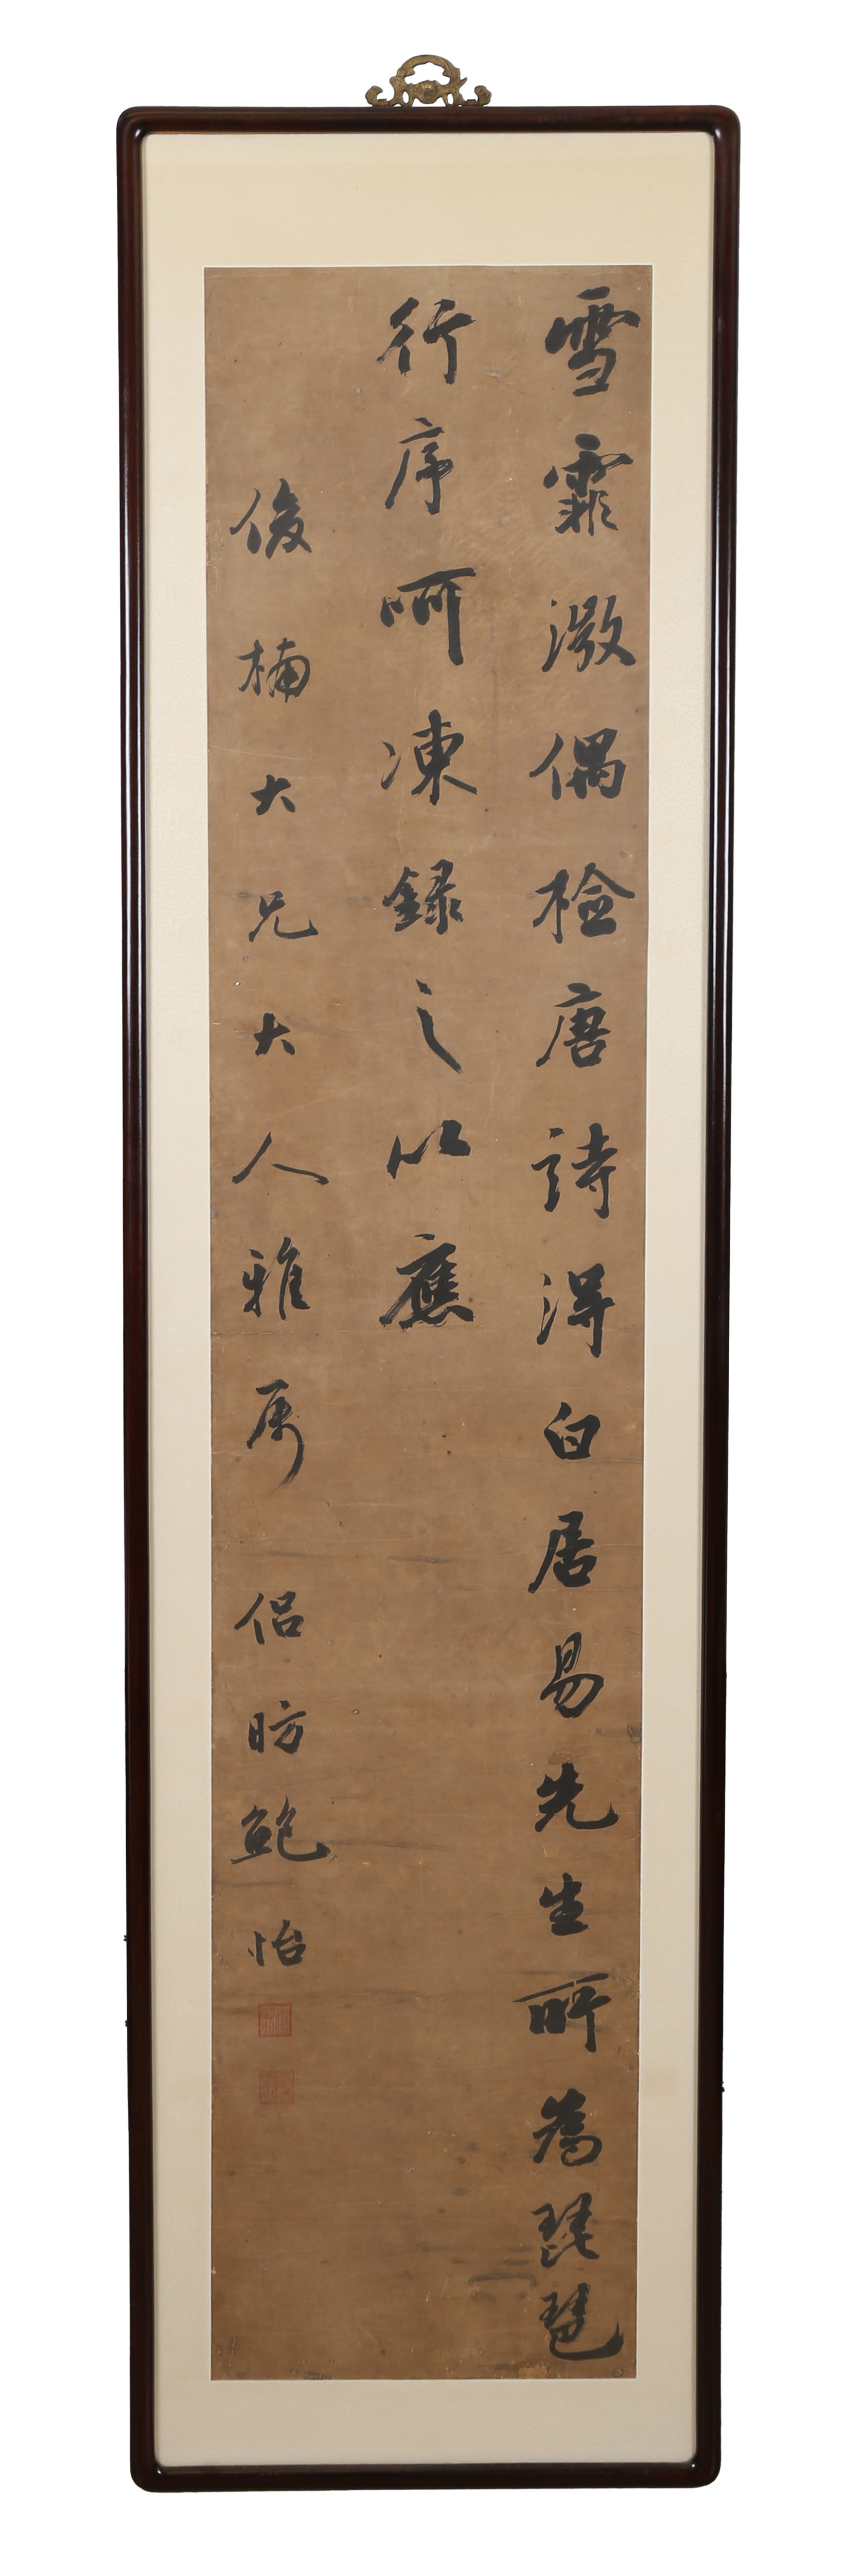 雪霏溦偶檢唐詩得白居易先生所為琵琶
行序呵凍錄之以應
俊楠大兄大人雅屬 侣昉鮑怡